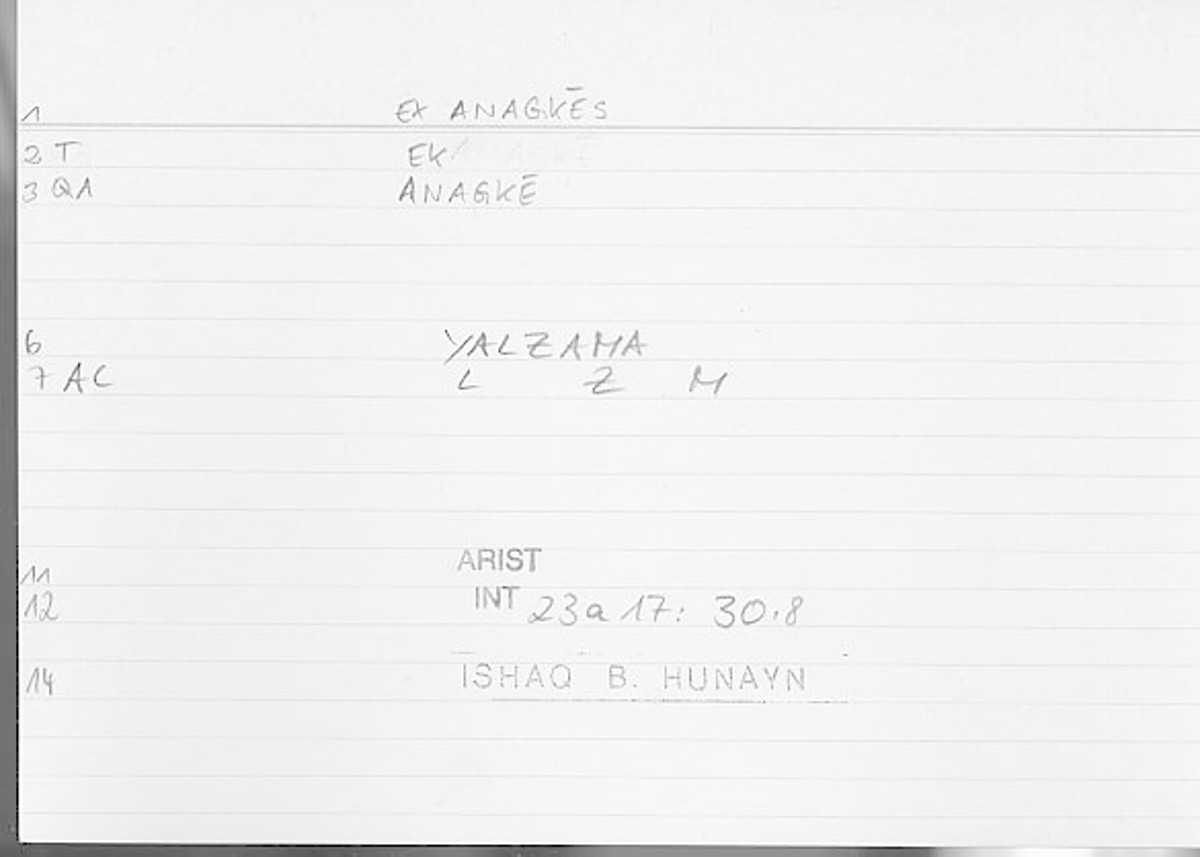 1 EX ANAGKĒS
2 T EK
3 QA ANAGKĒ
6 YALZAMA
7 AC L Z M
11 ARIST
12 INT 23a 17: 30.8
14 ISHAQ B. HUNAYN